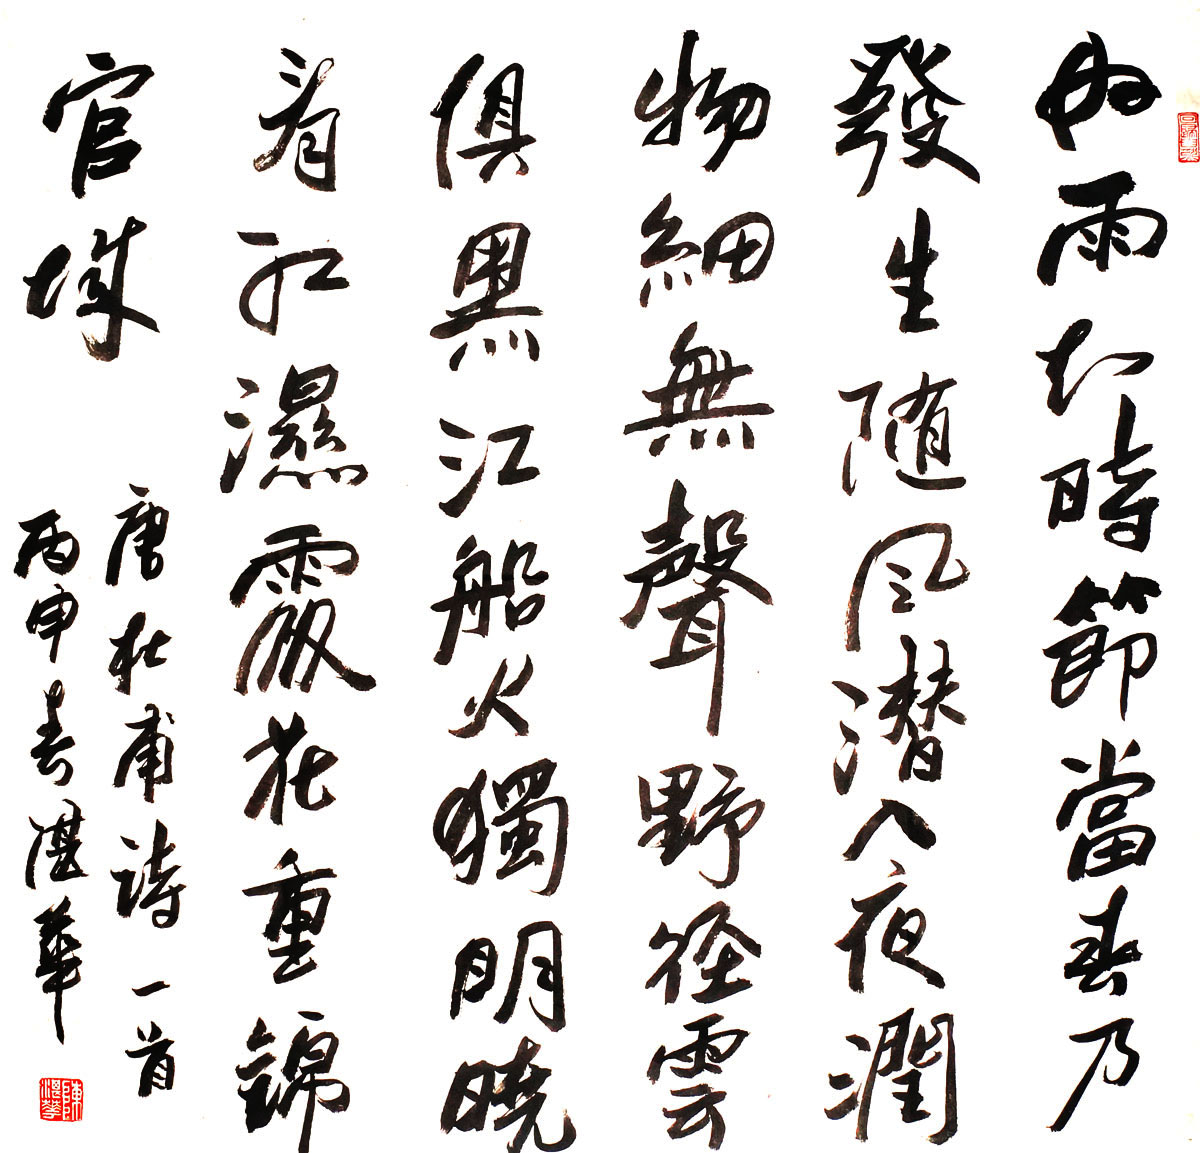 好雨知時節當春乃
發生随風潜入夜潤
物細無聲野径雲
俱黑江船火獨明曉
看紅濕處花重錦
官城
唐杜甫詩一首
丙申春湛華
陳湛華